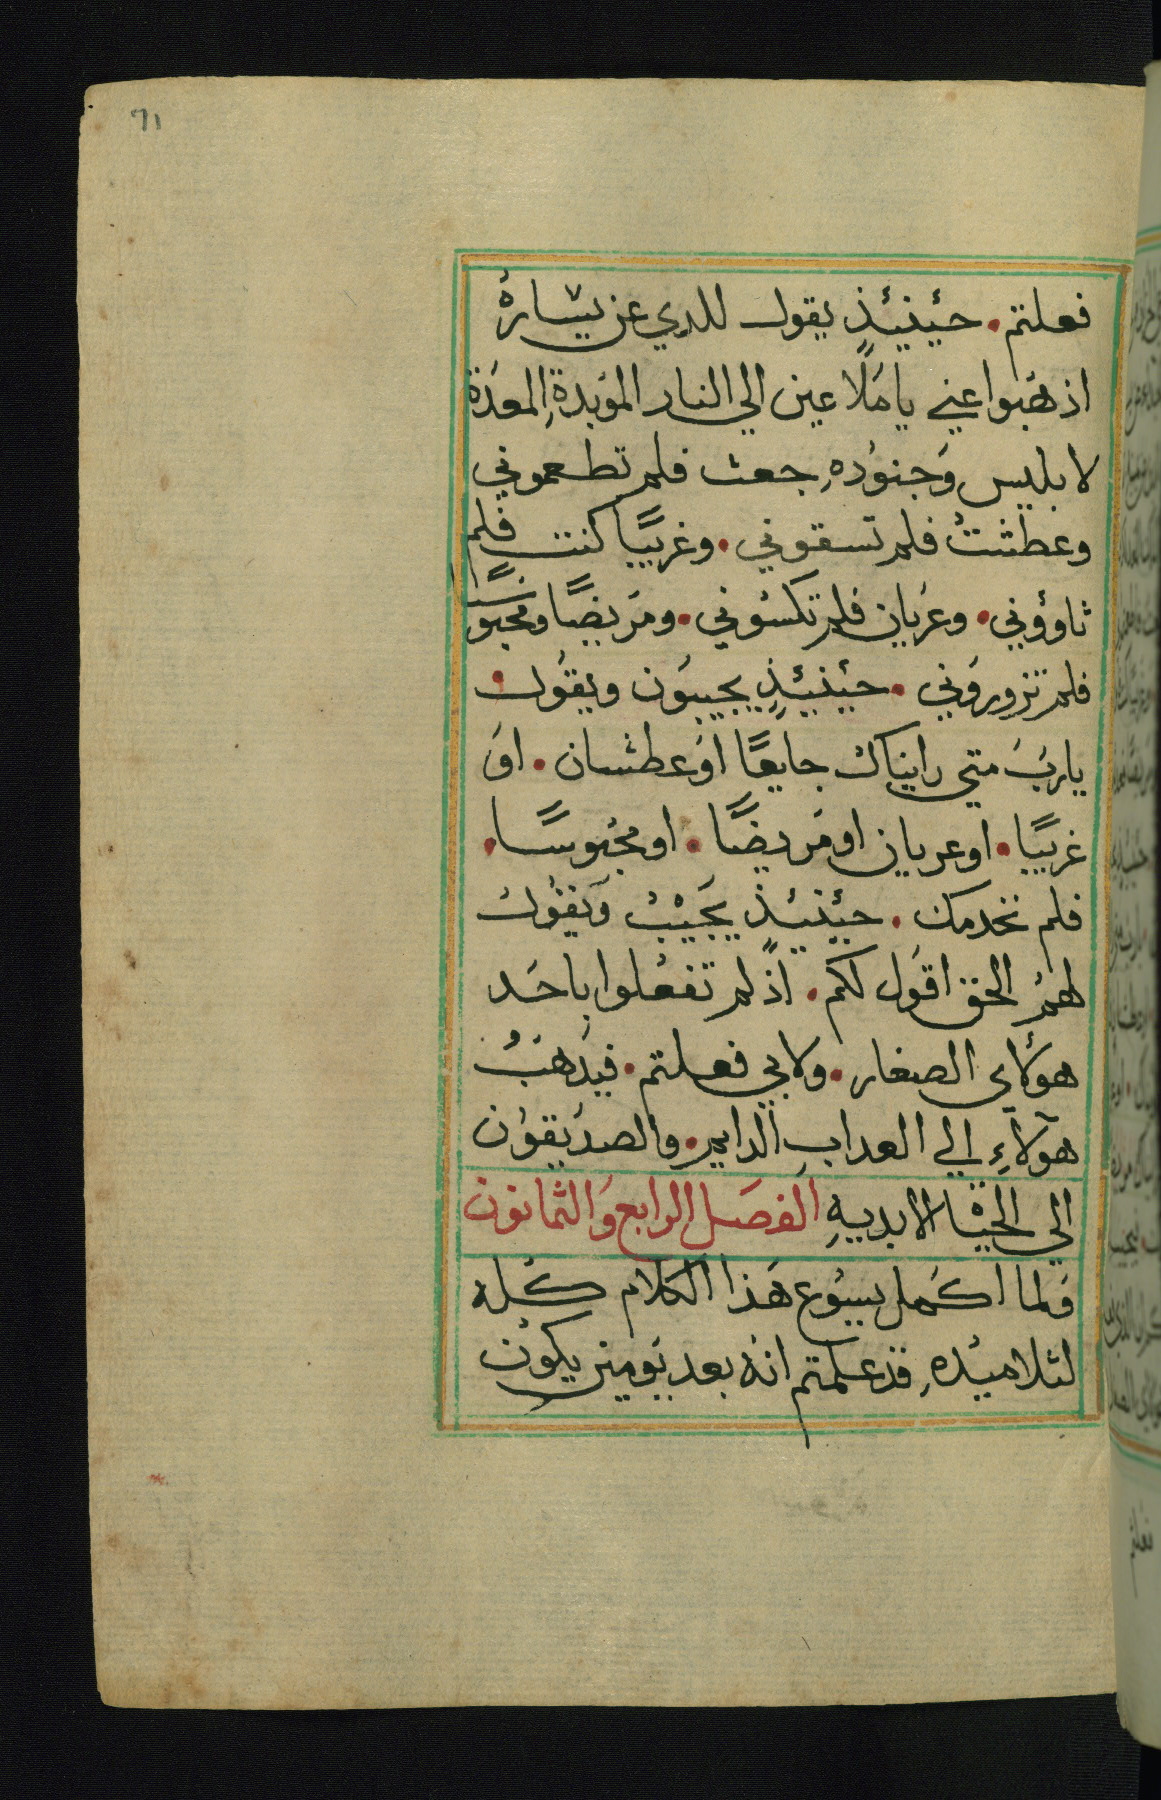 71
فعلتم. حينئيذٍ يقول للدي عن يسارهُ
اذهَبوا عني يا مَلاعين الي النار الموبدةِ المعدَة
لابليس وَجنودهِ جعت فلم تطعموني
وعطشتُ فلم تسقوني. وغريبًا كنت فلم
تاوؤني. وعريان فلم تكسُوني. ومَريضًا ومحبوسًا
فلم تزوروني. حينئيذٍ يجيبون ويقول
يا ربَ متي رايناك جايعًا اوَ عطشان. اوَ
غريبًا. او عريان او مَريضًا. او محبوسًا.
فلم نخدمك. حينئيذٍ يجَيْبُ وَيقُولُ
لهمْ الحق اقوَل لكم. اذ لم تفعلوا باحَد
هولاي الصغار. ولا بي فعلتم. فيدهَبُ
هولاءِ الي العدابِ الدايم. والصدَيقون
الي الحيْاة الابديهِ الفصَل الرابع وَالثمانون
فلما اكمَل يسُوع هَذا الكلام كُله
لتلاميدهِ قد علمتم انهُ بعد يَومين يكون
فعلتم